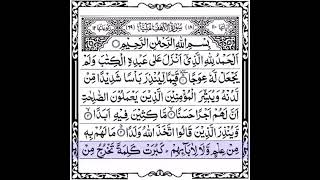 بِسْمِ اللّٰهِ الرَّحْمٰنِ الرَّحِيْمِ
اَلْحَمْدُ لِلّٰهِ الَّذِيْٓ اَنْزَلَ عَلٰى عَبْدِهِ الْكِتٰبَ وَلَمْ
يَجْعَلْ لَّهٗ عِوَجًا قَيِّمًا لِّيُنْذِرَ بَاْسًا شَدِيْدًا مِّنْ
لَّدُنْهُ وَيُبَشِّرَ الْمُؤْمِنِيْنَ الَّذِيْنَ يَعْمَلُوْنَ الصّٰلِحٰتِ
اَنَّ لَهُمْ اَجْرًا حَسَنًا مَّاكِثِيْنَ فِيْهِ اَبَدًا
وَّيُنْذِرَ الَّذِيْنَ قَالُوا اتَّخَذَ اللّٰهُ وَلَدًا مَا لَهُمْ بِهٖ
مِنْ عِلْمٍ وَّلَا لِاٰبَآئِهِمْ كَبُرَتْ كَلِمَةً تَخْرُجُ مِنْ